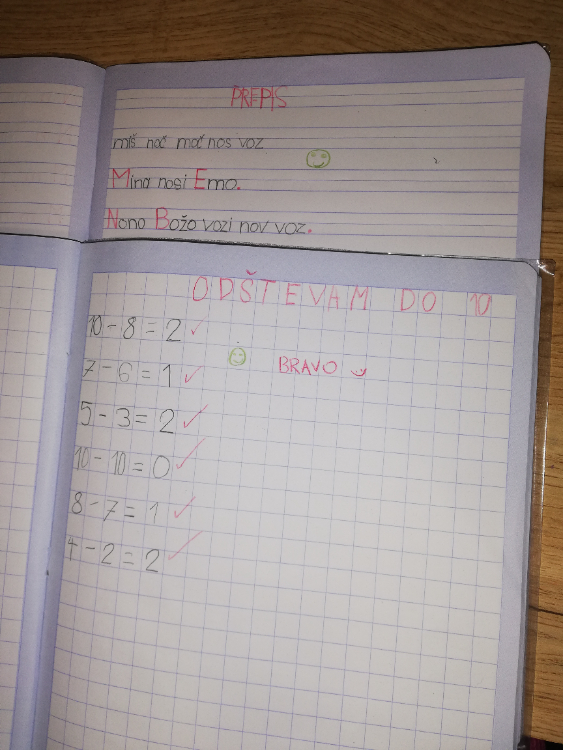 PREPIS
miš noč moč nos voz
Mina nosi Emo.
Nono Božo vozi nov voz.
ODŠTEVAM DO 10
10 - 8 = 2
7 - 6 = 1
BRAVO
5 - 3 = 2
10 - 10 = 0
8 - 7 = 1
4 - 2 = 2